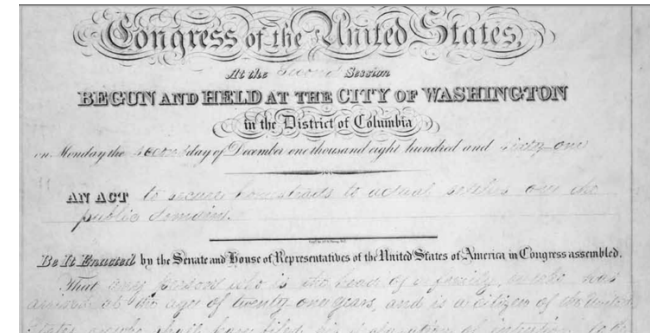 Congress of the United States,
At the Second Session
BEGUN AND HELD AT THE CITY OF WASHINGTON
in the District of Columbia
on Monday the second day of December one thousand eight hundred and sixty one
AN ACT to secure homesteads to actual settlers on the
public domain.
Be It Enacted by the Senate and House of Representatives of the United States of America in Congress assembled,
That any person who is the head of a family, or who has
arrived at the age of twenty one years, and is a citizen of the United
States, or who shall have filed his declaration of intention to